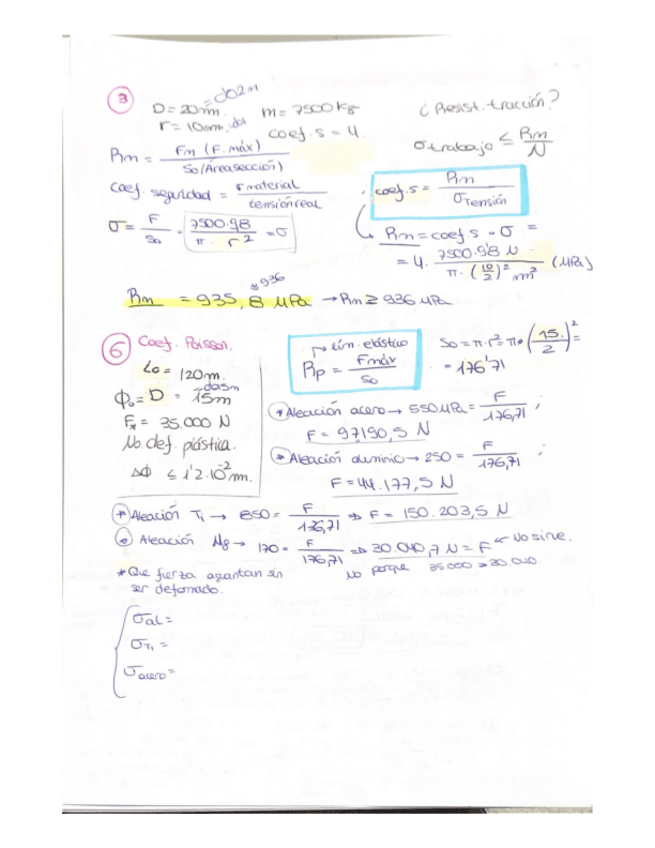 3
D = 20mm. = do2m
r = 10mm. do1
m = 7500 kg
coef. s = 4.
¿Resist. tracción?
σtrabajo ≤ Rm/N
Rm = Fm (F. máx) / So (Área sección)
coef. seguridad = σmaterial / tensión real
coef. s = Rm / σTensión
σ = F/So = 7500·98 / π · r² = σ
Rm = coef. s · σ =
= 4 · 7500·9'8 N / π · (10/2)² m² (MPa)
≈ 936
Rm = 935,8 MPa → Rm ≥ 936 MPa
6 Coef. Poisson.
Lo = 120m.
Φo = D = 15m
F = 35.000 N
No def. plástica.
ΔΦ ≤ 1'2·10⁻² m.
→ lím. elástico
Rp = Fmáx / So
So = π·r² = π · (15/2)² =
= 176'71
* Aleación acero → 550 MPa = F / 176,71 ;
F = 97190,5 N
* Aleación aluminio → 250 = F / 176,71 ;
F = 44.177,5 N
* Aleación Ti → 850 = F / 176,71 ⇒ F = 150.203,5 N
Aleación Mg → 170 = F / 176,71 ⇒ 30.040,7 N = F ← No sirve.
No porque 35000 > 30.040
* Que fuerza aguantan sin
ser deformado.
σal =
σTi =
σacero =